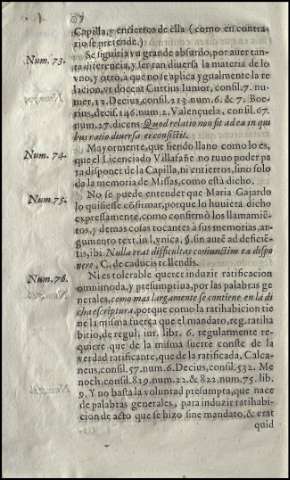 Capilla, y entierros de ella (como en contra-
rio se pretende.)
Num. 73.
Se siguiria vn grande absurdo, por auer tan-
ta inferencia, y ser tan diuersa la materia de lo
vno, y otro, a que no se aplica ygualmente la re
lacion, vt docent Curtius Iunior, consil. 7. nu-
mer. 12. Decius, consil. 213. num. 6. & 7. Boe-
rius, decis. 146. num. 2. Valençuela, consil. 67.
num. 27. dicens Quod relatio non sit ad ea in qui
bus ratio diuersa est consistit.
Num. 74.
Mayormente, que siendo llano como lo es,
que el Licenciado Villafañe no tuuo poder pa
ra disponer de la Capilla, ni entierros, sino solo
da la memoria de Missas, como está dicho,
Num. 75.
No se puede entender que Maria Gajardo
lo quisiesse cõfirmar, porque lo huuiera dicho
expressamente, como confirmò los llamamiẽ-
tos, y demas cosas tocantes à sus memorias, ar-
gumento text. in l. vnica, §. sin autẽ ad deficiẽ-
tis, ibi. Nulla erat difficultas coniunctim ea dispo
nere, C. de caducis tollendis.
Num. 76.
Ni es tolerable querer induzir ratificacion
omnimoda, y presumptiua, por las palabras ge
nerales, como mas largamente se contiene en la di
cha escriptura, porque como la ratihabicion tie
ne la misma fuerça que el mandato, reg. ratiha
bitio, de regul. iur. libr. 6. regularmente re-
quiere que de la misma suerte conste de la
verdad ratificante, que de la ratificada, Calca-
neus, consil. 57. num. 6. Decius, consil. 532. Me
noch. consil. 819. num. 22. & 822. num. 75. lib.
9. Y no basta la voluntad presumpta, que nace
de palabras generales, para induzir ratihabi-
cion de acto que se hizo sine mandato, & erat
quid